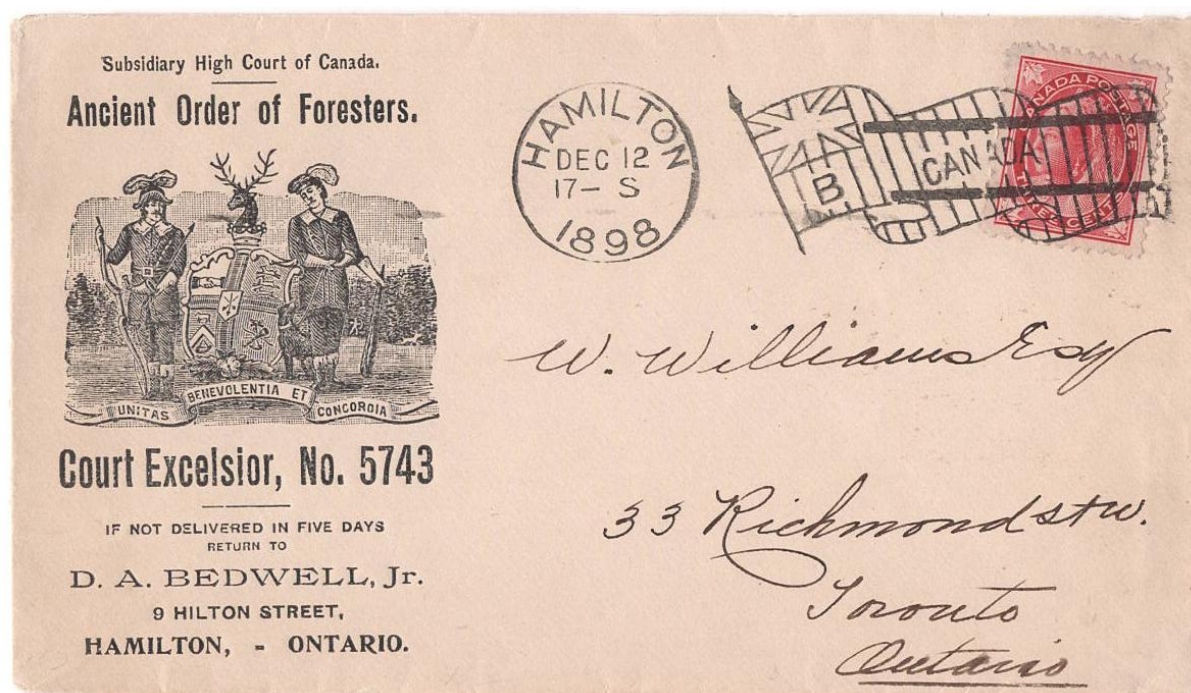 Subsidiary High Court of Canada.
Ancient Order of Foresters.
UNITAS BENEVOLENTIA ET CONCORDIA
Court Excelsior, No. 5743
IF NOT DELIVERED IN FIVE DAYS
RETURN TO
D. A. BEDWELL, Jr.
9 HILTON STREET,
HAMILTON, - ONTARIO.
HAMILTON
DEC 12
17- S
1898
B.
CANADA
CANADA POSTAGE
THREE CENTS
W. Williams Esq
33 Richmond st w.
Toronto
Ontario